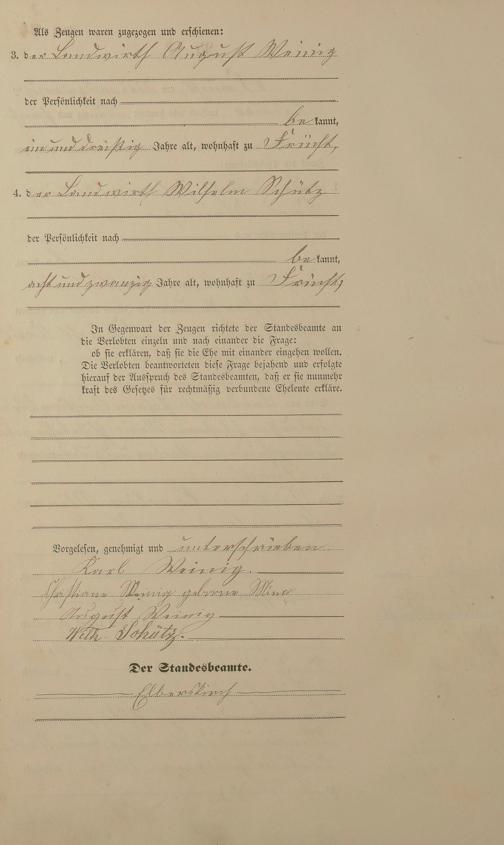 Als Zeugen waren zugezogen und erschienen:
3. der Landwirth August Weinig
der Persönlichkeit nach
be kannt,
ein und dreißig Jahre alt, wohnhaft zu Frücht,
4. der Landwirth Wilhelm Schütz
der Persönlichkeit nach
be kannt,
acht und zwanzig Jahre alt, wohnhaft zu Frücht,
In Gegenwart der Zeugen richtete der Standesbeamte an
die Verlobten einzeln und nach einander die Frage:
ob sie erklären, daß sie die Ehe mit einander eingehen wollen.
Die Verlobten beantworteten diese Frage bejahend und erfolgte
hierauf der Ausspruch des Standesbeamten, daß er sie nunmehr
kraft des Gesetzes für rechtmäßig verbundene Eheleute erkläre.
Vorgelesen, genehmigt und unterschrieben
Karl Weinig.
Weinig geborne
August Weinig
Wilh. Schütz.
Der Standesbeamte.
Elberskirch